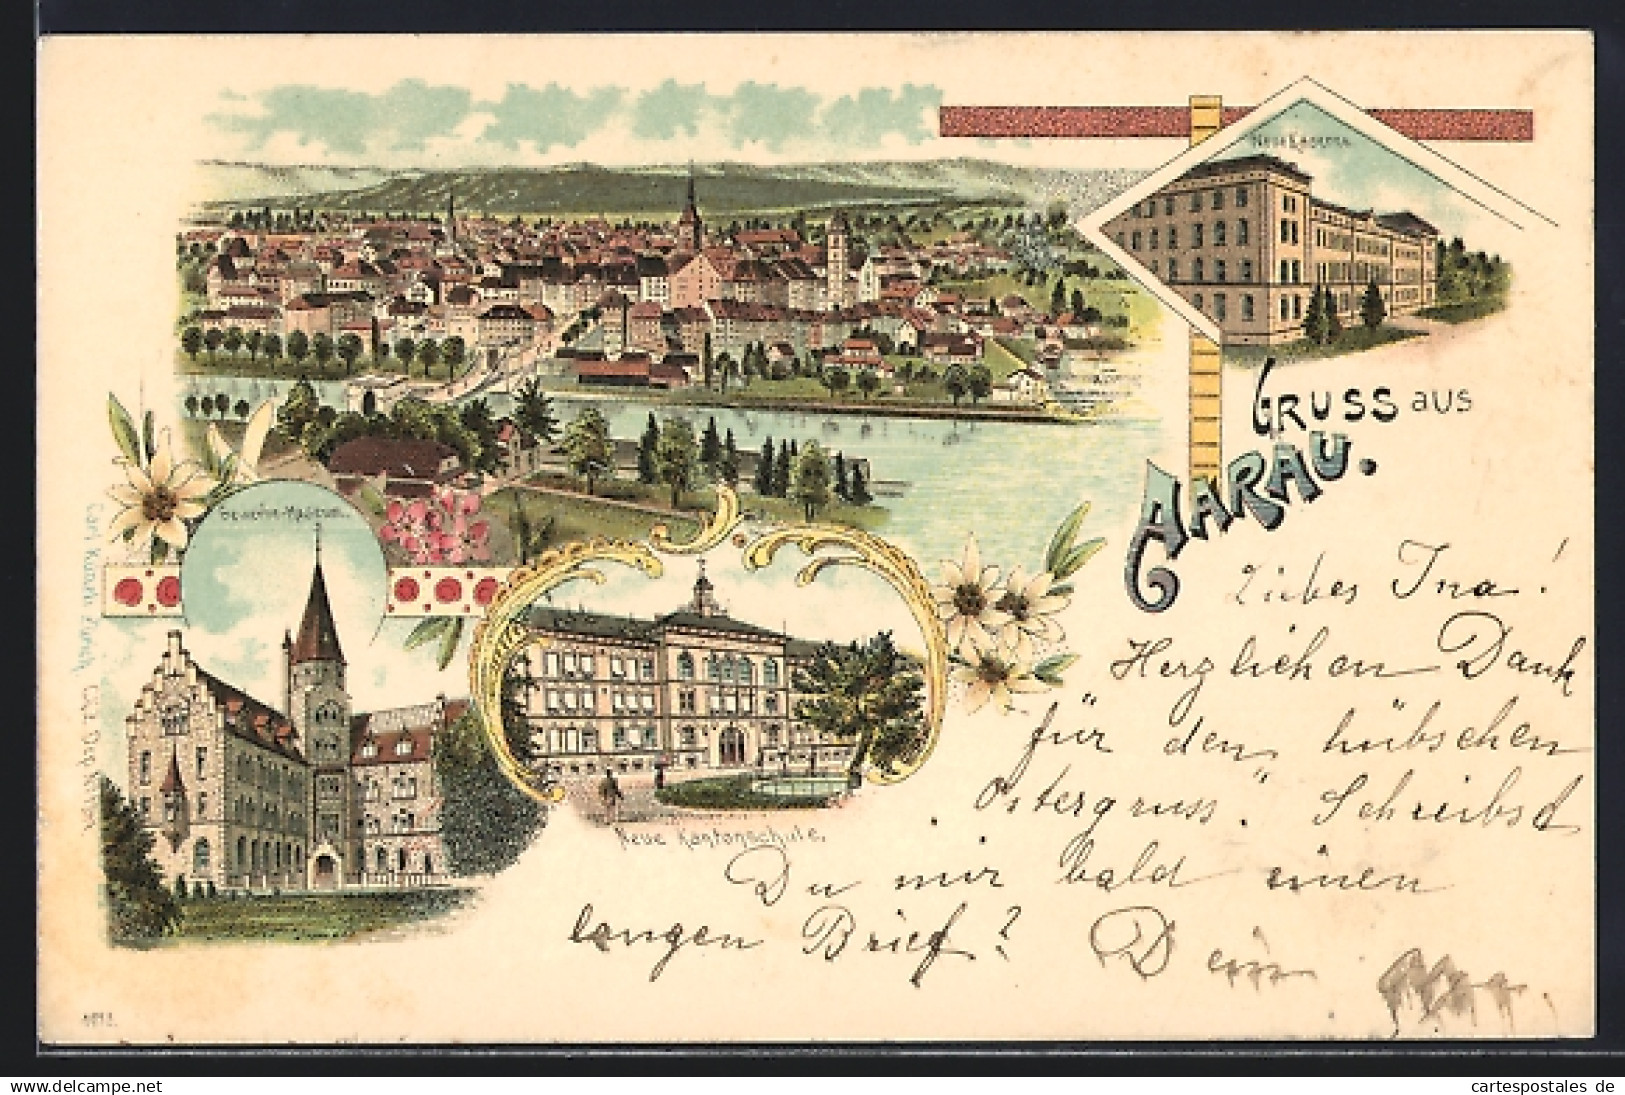 Neue Kaserne.
GRUSS AUS
AARAU.
Gewerbe-Museum.
Liebes Ina!
Herzlichen Dank
für den hübschen
"Ostergruss". Schreibst
Neue Kantonschule.
Du mir bald einen
langen Brief? Dein
Carl Künzli, Zürich,
4072.
delcampe.net
cartespostales de